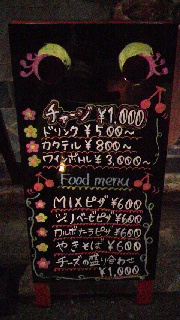 チャージ ¥1,000
ドリンク ¥500~
カクテル ¥800~
ワインボトル ¥3,000~
Food menu
MIXピザ ¥600
シーフードピザ ¥600
カルボナーラピザ ¥600
やきそば ¥600
チーズの盛り合わせ
¥1,000